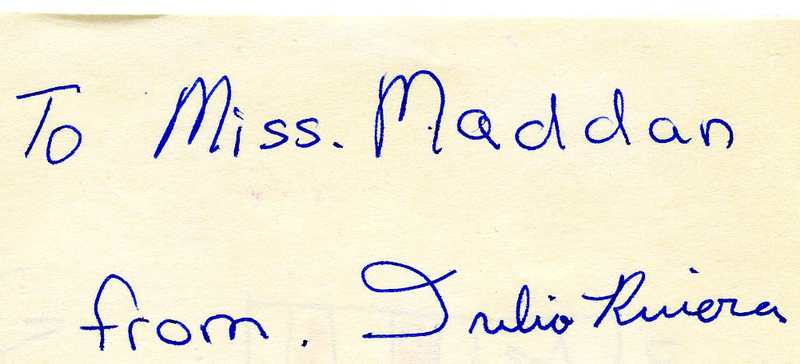 To Miss. Maddan
from. Julio Rivera